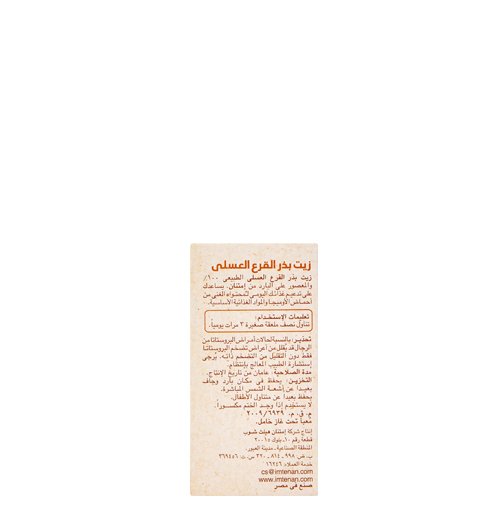 زيت بذر القرع العسلى
زيت بذر القرع العسلى الطبيعى ١٠٠٪
والمعصور على البارد من إمتنان. يساعدك
على تدعيم غذائك اليومى لمحتواه الغنى من
أحماض الأوميجا والمواد الغذائية الأساسية.
تعليمات الإستخدام:
تناول نصف ملعقة صغيرة ٣ مرات يومياً.
تحذير: بالنسبة لحالات أمراض البروستاتا من
الرجال قد يقلل من أعراض تضخم البروستاتا
فقط دون التقليل من التضخم ذاته. يرجى
إستشارة الطبيب المعالج بإنتظام.
مدة الصلاحية: عامان من تاريخ الإنتاج.
التخزين: يحفظ فى مكان بارد وجاف
بعيداً عن أشعة الشمس المباشرة.
يحفظ بعيداً عن متناول الأطفال.
لا يستخدم إذا وجد الختم مكسوراً.
م. ق. م. ٢٠٠٩/٦٩٣٩
معبأ تحت غاز خامل.
إنتاج شركة إمتنان هيلث شوب
قطعة رقم ١٠، بلوك ٢٠٠١٤
المنطقة الصناعية - مدينة العبور.
ب. ض: ٩٩٨ - ٨١٤ - ٣٢٠ س. ت: ٣٦٩٤٥٦
خدمة العملاء: ١٦٢٤٦
cs@imtenan.com
www.imtenan.com
صنع في مصر